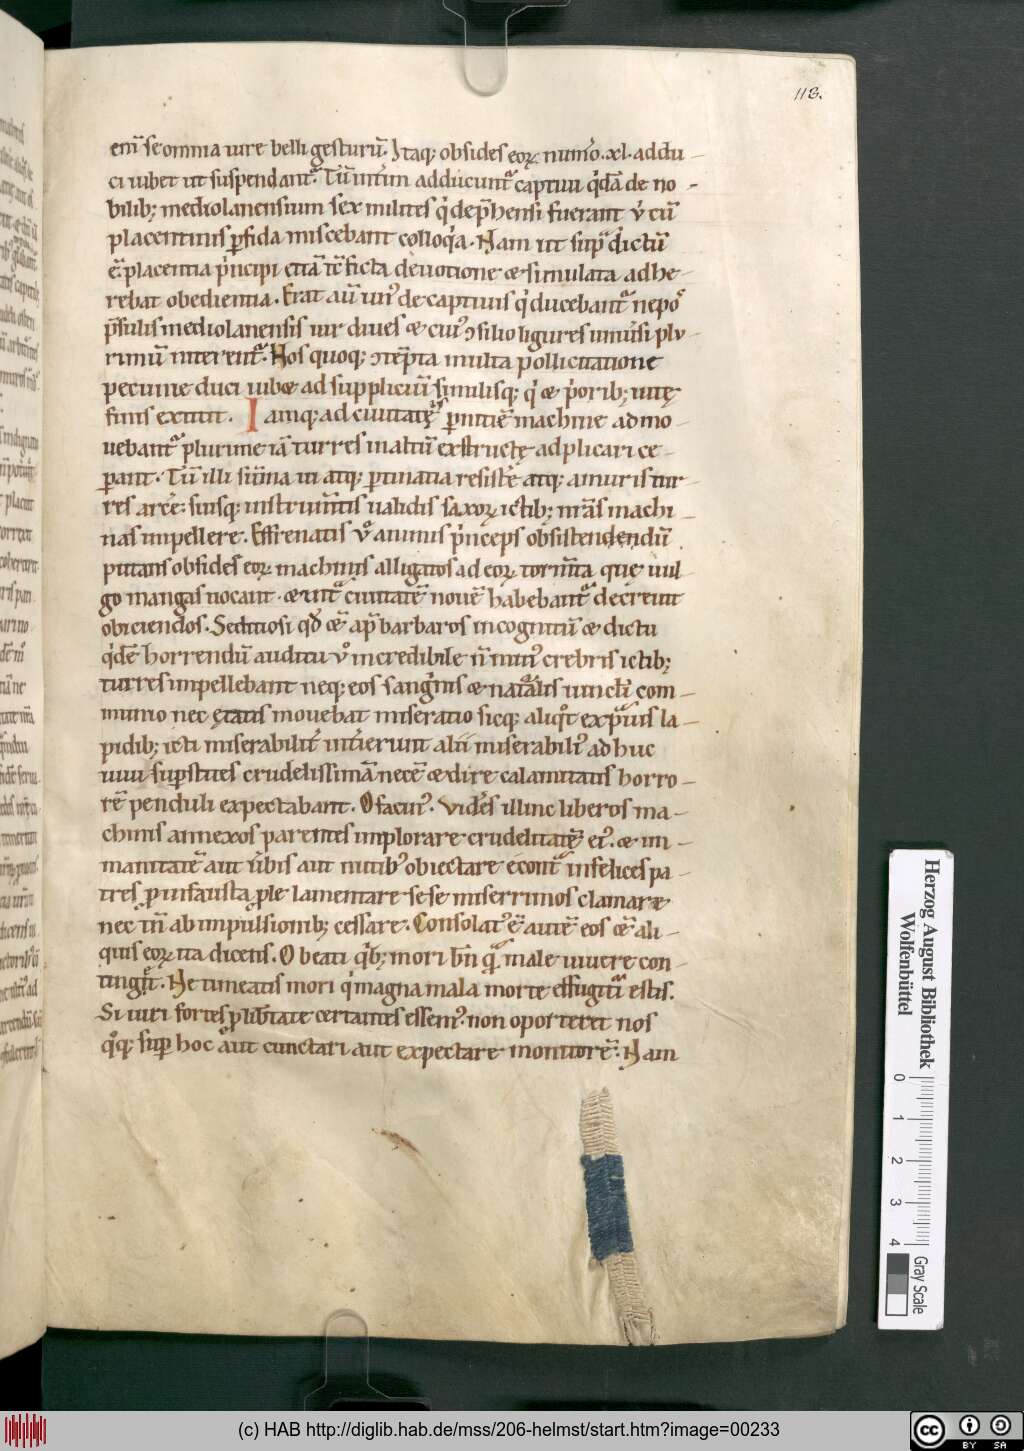 118.
em̄ se omnia iure belli gesturū. Itaq; obsides eoꝝ num̄o .xl. addu-
ci iubet ut suspendant᷑. Tū int̄im adducunt᷑ captiui q'dā de no-
bilib; mediolanensium sex milites q' dep̄hensi fuerant v̓ cū
placentinis ꝑfida miscebant colloq'a. Nam ut sup᷑ dictū
ē placentia p'ncipi etiā tc̄ ficta deuotione & simulata adhe-
rebat obedientia. Erat aū un᾽ de captiuis q' ducebant᷑ nepo᷑
p̄sulis mediolanensis uir diues & cui᾽ ɔsilio ligures uniūsi plu-
rimū niterent᷑. Hos quoq; ɔtēpta multa pollicitatione
pecunie duci iub& ad suppliciū similisq; q' & p'orib; uitę
finis extitit. Iamq; ad ciuitatę ꝑnitiē machine admo-
uebant᷑ plurime iā turres in altū exstructę adplicari ce-
ꝑant. Tū illi sūma ui atq; ꝑtinatia resist̄e atq; a muris tur-
res arc̄e: suisq; instrum̄tis ualidis saxoꝝ ictib; nr̄as machi-
nas impellere. Effrenatis v̊ animis p'nceps obsistendendū
putans obsides eoꝝ machinis alligatos ad eoꝝ torm̄ta que uul-
go mangas uocant. & int᷑ ciuitatē nouē habebant᷑ decreuit
obiciendos. Seditiosi qd̄ &̄ ap̄ barbaros incognitū & dictu
q'dē horrendū auditu v̊ incredibile n̄ min᾽ crebris ictib;
turres impellebant neq; eos sang'nis & nat᷑alis uincl'i com-
munio nec ętatis mouebat miseratio sicq; aliq̊t ex p᷑uis la-
pidib; icti miserabilit̄ int̄ierunt alii miserabili᾽ adhuc
uiui suꝑstites crudelissimā necē & dire calamitatis horro-
rē penduli expectabant. O facin᾽. Videres illinc liberos ma-
chinis annexos parentes implorare crudelitatē ei᾽. & im-
manitatē aut ūbis aut nutib᾽ obiectare econt᷑ infelices pa-
tres ꝓ infausta ꝓle lamentare sese miserrimos clamare
nec tn̄ ab impulsionib; cessare. Consolat᾽ ē autē eos &̄ ali-
quis eoꝝ ita dicens. O beati q'b; mori bn̄ q᷑ male uiuere con-
tingit. Ne timeatis mori q' magna mala morte effugituri estis.
Si iuri fortes ꝓ lib̄tate certantes essem᾽. non oporteret nos
q̊q; suꝑ hoc aut cunctari aut expectare monitorē. Nam
Herzog August Bibliothek
Wolfenbüttel
0 1 2 3 4
Gray Scale
(c) HAB http://diglib.hab.de/mss/206-helmst/start.htm?image=00233
cc BY SA